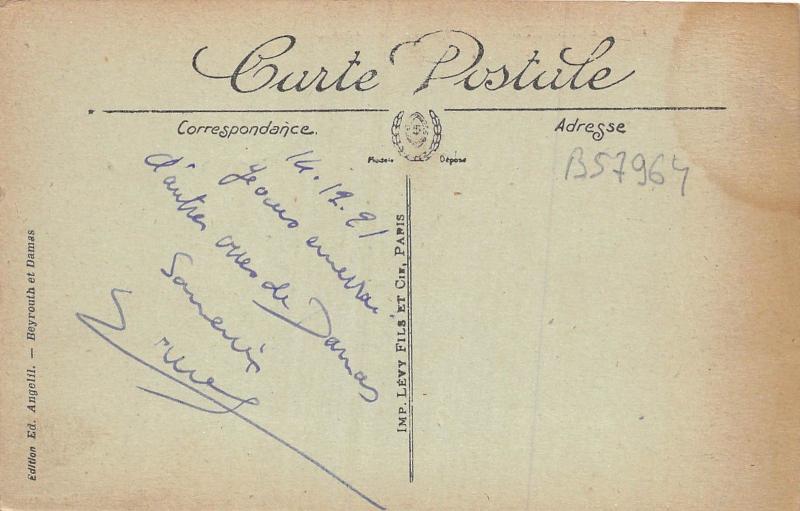 Carte Postale
Correspondance.
Adresse
Modèle Déposé
B57964
14.12.21
Je vous enverrai
d'autres vues de Damas
Souvenir
IMP. LÉVY FILS ET CIE, PARIS
Edition Ed. Angelil. — Beyrouth et Damas